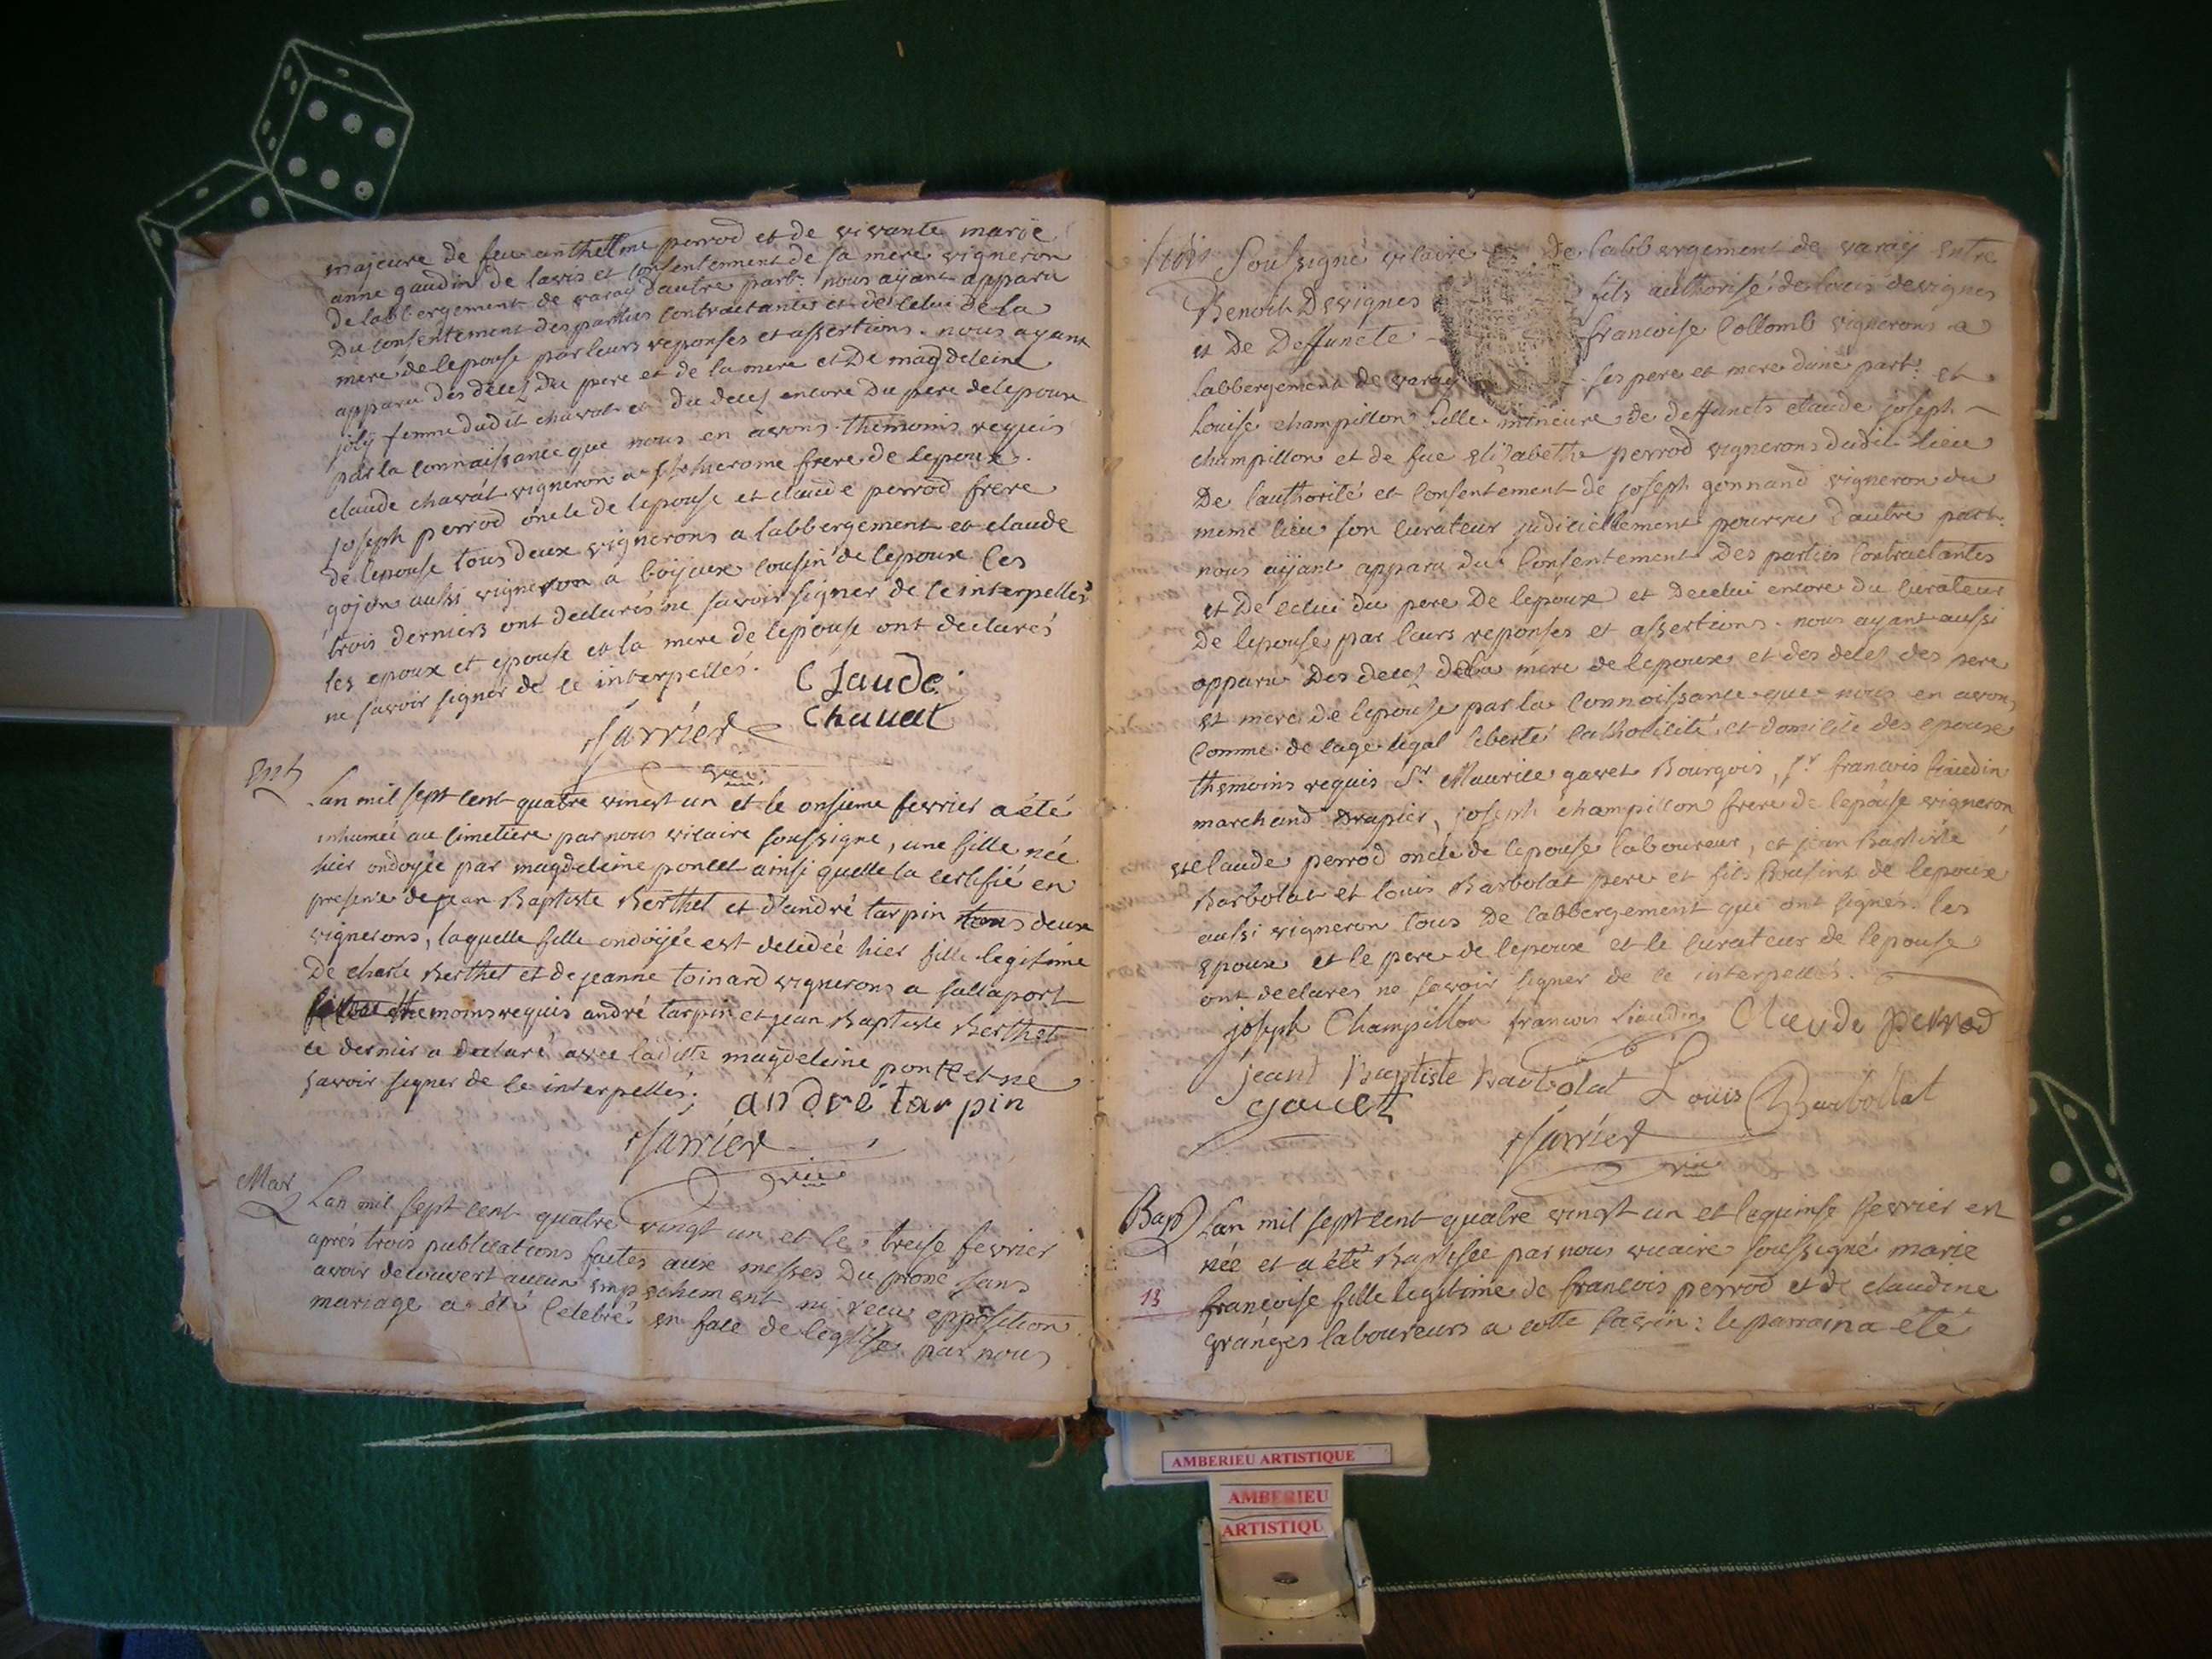 majeure de feu anthelme perrod et de vivante marie
anne gaudin de lavis et consentement de sa mere vigneron
de labbergement de varay dautre part. nous aÿant apparu
Du consentement des parties contractantes et de celui de la
mere de lepouse par leurs reponses et assertions. nous ayant
apparu des deces du pere et de la mere et De magdeleine
jolÿ femme dudit chavat et du deces encore Du pere de lepouse
par la connaissance que nous en avons. themoins requis
claude chavat vigneron a st hierome frere de lepoux.
joseph perrod oncle de lepouse et claude perrod frere
de lepouse tous deux vignerons a labbergement et claude
gojon aussi vigneron a boÿeux cousin de lepoux les
trois derniers ont declarés ne savoir signer de ce interpellés
les epoux et epouse et la mere de lepouse ont declarés
ne savoir signer de ce interpellés.
Claude
chauat
Sarrier
vic:
Ent
Lan mil sept cent quatre vingt un et le onsieme fevrier a été
inhumée au cimetiere par nous vicaire soussigné, une fille née
hier ondoyée par magdeleine poncet ainsi quelle la certifié en
presence de jean Baptiste Berthet et d'andré tarpin tous deux
vignerons, laquelle fille ondoÿée est decedée hier fille legitime
De charle Berthet et de jeanne toinard vignerons a sallaport
themoins requis andré tarpin et jean Baptiste Berthet
ce dernier a declaré avec ladite magdeleine pontcet ne
savoir signer de ce interpellés;
andré tarpin
Sarrier
vic
Mar
Lan mil sept cent quatre vingt un et le treise fevrier
aprés trois publications faites aux messes Du prone sans
avoir decouvert aucun empechement ni recu opposition
mariage a été Celebré en face de leglise par nous
Soussigné vicaire De labbergement de varaÿ Entre
Benoit Devignes fils authorisé de louis devignes
et De Deffuncte francoise Collomb vignerons a
labbergement de varay ses pere et mere dune part. et
Louise champillon fille mineure de deffuncts claude joseph
champillon et de feue elizabeth perrod vignerons dudit lieu
De l'authorité et Consentement de joseph gonnand vigneron du
meme lieu son curateur judiciellement pourvu d'autre part.
nous aÿant apparu du Consentement Des parties Contractantes
et De celui du pere De lepoux et decelui encore du curateur
De lepouse par leurs reponses et assertions. nous ayant aussi
apparu Des deces dela mere de lepoux et des deces des pere
et mere de lepouse par la Connoissance que nous en avons
Comme de lage legal liberté catholicité et domicile des epoux
themoins requis Sr Maurice gavet Bourgois, sr francois liaudin
marchand drapier, joseph champillon frere de lepouse vigneron
et claude perrod oncle de lepouse laboureur, et jean Baptiste
Barbolat et louis Barbolat pere et fils cousins de lepoux
aussi vigneron tous De labbergement qui ont signés. les
Epoux et le pere de lepoux et le curateur de lepouse
ont declarés ne savoir signer de ce interpellés.
joseph Champillon francois Liaudin Claude perrod
jean Baptiste Barbolat Louis Barbollat
gauet
Sarrier
vic
Bap
Lan mil sept cent quatre vingt un et le quinse fevrier est
née et a été Baptisée par nous vicaire soussigné marie
13
francoise fille legitime de francois perrod et de claudine
granges laboureurs a cotte savin: le parrain a été
AMBERIEU ARTISTIQUE
AMBERIEU
ARTISTIQU